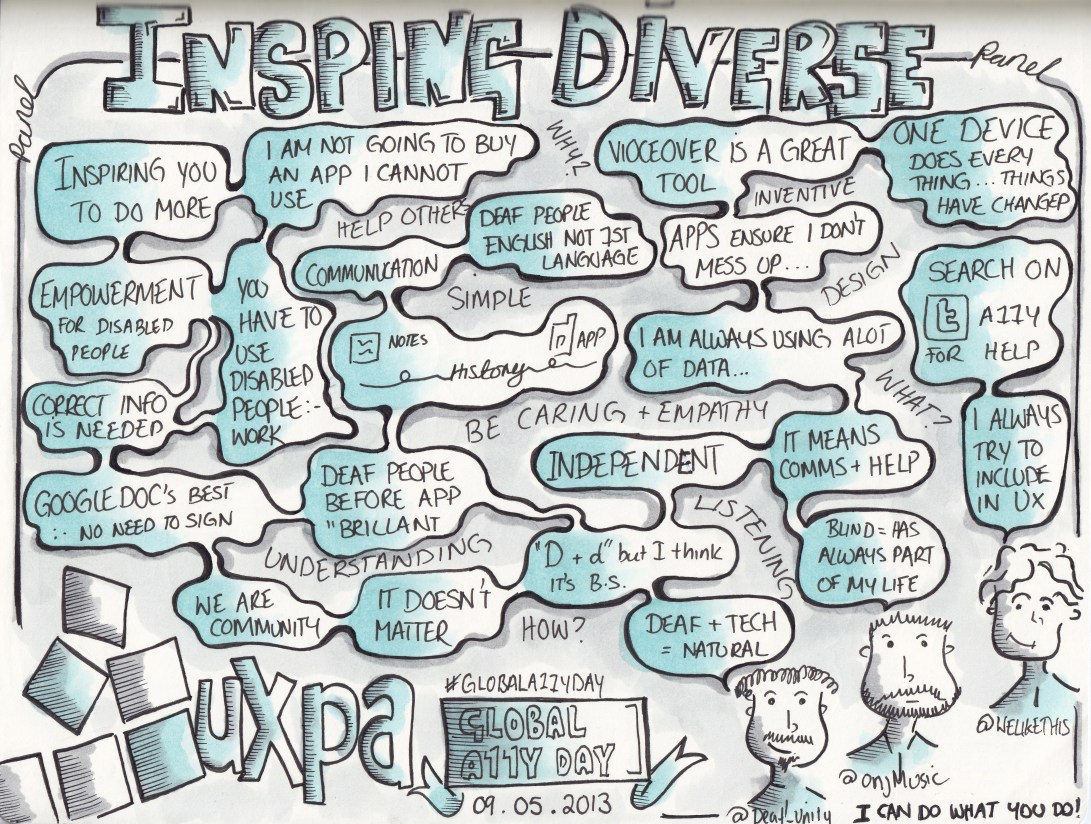 INSPING DIVERSE
Panel
Panel
INSPIRING YOU
TO DO MORE
I AM NOT GOING TO BUY
AN APP I CANNOT
USE
WHY?
VIOCEOVER IS A GREAT
TOOL
ONE DEVICE
DOES EVERY
THING... THINGS
HAVE CHANGED
HELP OTHERS
DEAF PEOPLE
ENGLISH NOT 1ST
LANGUAGE
INVENTIVE
APPS ENSURE I DON'T
MESS UP...
DESIGN
EMPOWERMENT
FOR DISABLED
PEOPLE
YOU
HAVE TO
USE
DISABLED
PEOPLE:-
WORK
COMMUNICATION
SIMPLE
SEARCH ON
t A11Y
FOR HELP
NOTES
APP
History
I AM ALWAYS USING ALOT
OF DATA...
WHAT?
CORRECT INFO
IS NEEDED
BE CARING + EMPATHY
I ALWAYS
TRY TO
INCLUDE
IN UX
INDEPENDENT
IT MEANS
COMMS + HELP
GOOGLE DOC'S BEST
:. NO NEED TO SIGN
DEAF PEOPLE
BEFORE APP
"BRILLANT
LISTENING
BLIND = HAS
ALWAYS PART
OF MY LIFE
UNDERSTANDING
"D + d" but I think
IT'S B.S.
WE ARE
COMMUNITY
IT DOESN'T
MATTER
HOW?
DEAF + TECH
= NATURAL
uxpa
#GLOBALA11YDAY
GLOBAL
A11Y DAY
09.05.2013
@Deaf_Unity
@onjMusic
@WELIKETHIS
I CAN DO WHAT YOU DO!